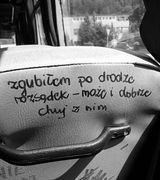 zgubiłem po drodze
rozsądek - może i dobrze
chuj z nim